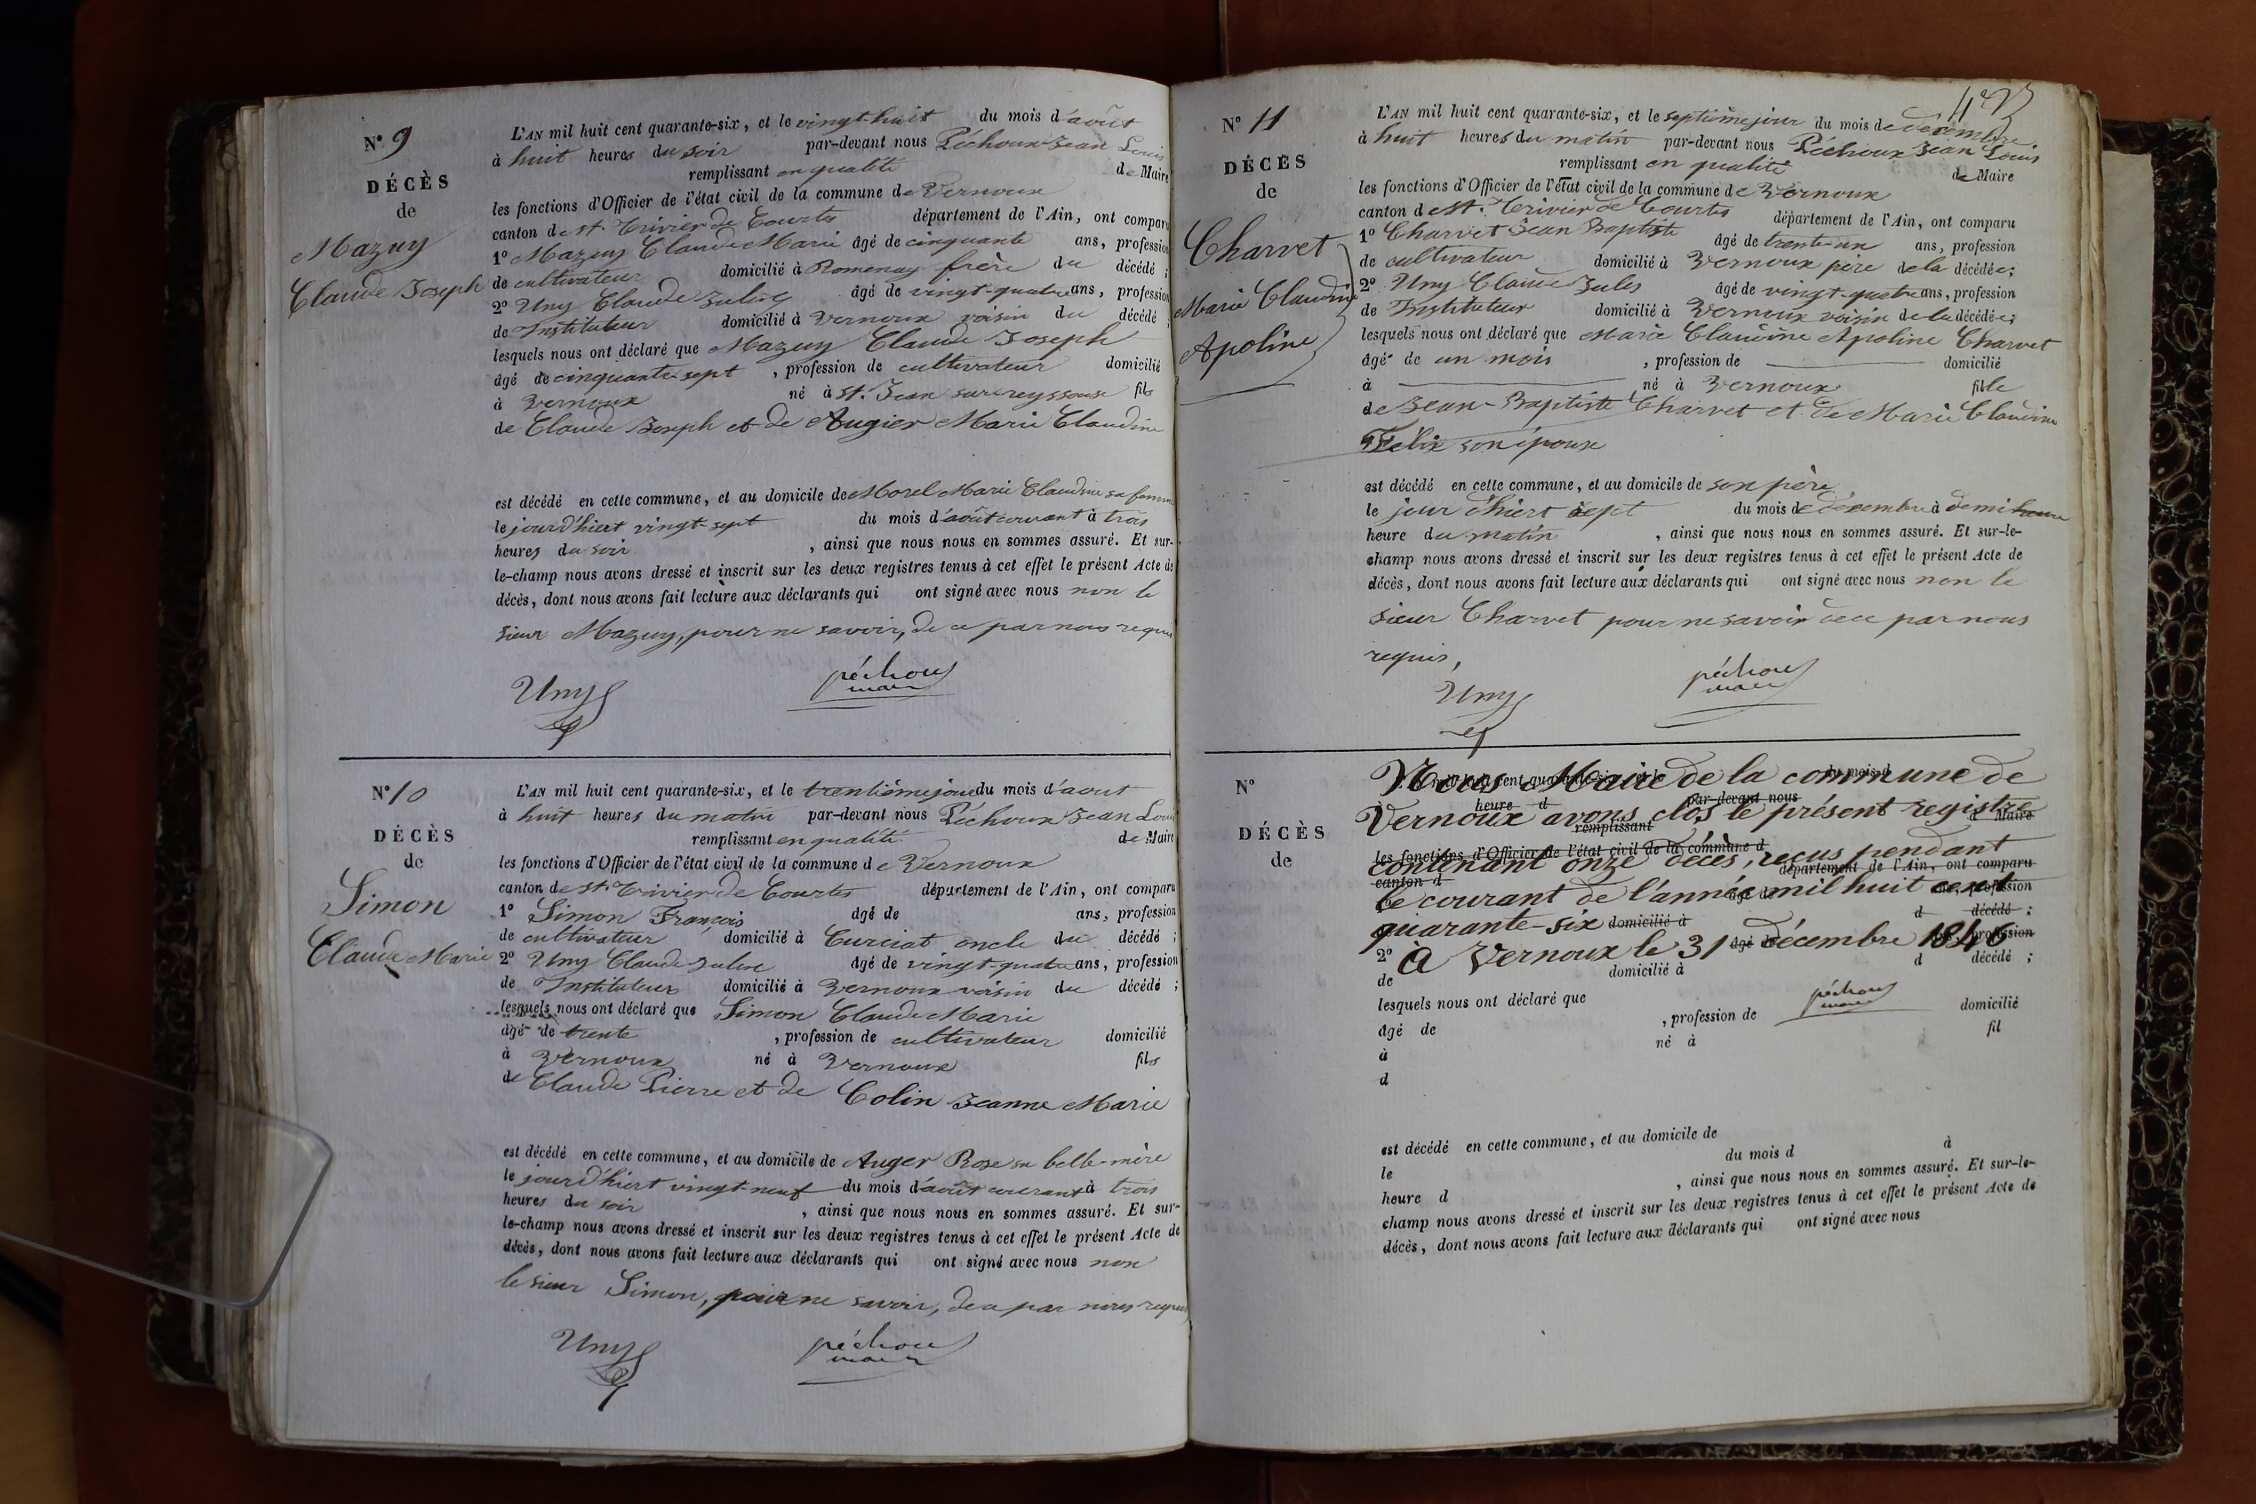 N° 9
DÉCÈS
de
Mazuy
Claude Joseph
L'AN mil huit cent quarante-six, et le vingt huit du mois d'août
à huit heures du soir par-devant nous Péchoux Jean Louis
remplissant en qualité de Maire
les fonctions d'Officier de l'état civil de la commune de Vernoux
canton de St. Trivier de Courtes département de l'Ain, ont comparu
1° Mazuy Claude Marie âgé de cinquante ans, profession
de cultivateur domicilié à Romenay frère du décédé ;
2° Uny Claude Jules âgé de vingt-quatre ans, profession
de Instituteur domicilié à Vernoux voisin du décédé ;
lesquels nous ont déclaré que Mazuy Claude Joseph
âgé de cinquante sept , profession de cultivateur domicilié
à Vernoux né à St. Jean sur reyssouse fils
de Claude Joseph et de Augier Marie Claudine
est décédé en cette commune, et au domicile de Morel Marie Claudine sa femme
le jour d'hiert vingt sept du mois d'août courant à trois
heures du soir , ainsi que nous nous en sommes assuré. Et sur-
le-champ nous avons dressé et inscrit sur les deux registres tenus à cet effet le présent Acte de
décès, dont nous avons fait lecture aux déclarants qui ont signé avec nous non le
sieur Mazuy, pour ne savoir, de ce par nous requis
Uny péchoux
maire
N° 10
DÉCÈS
de
Simon
Claude Marie
L'AN mil huit cent quarante-six, et le trentième jour du mois d'aout
à huit heures du matin par-devant nous Péchoux Jean Louis
remplissant en qualité de Maire
les fonctions d'Officier de l'état civil de la commune de Vernoux
canton de St. Trivier de Courtes département de l'Ain, ont comparu
1° Simon François âgé de ans, profession
de cultivateur domicilié à Curciat oncle du décédé ;
2° Uny Claude Jules âgé de vingt-quatre ans, profession
de Instituteur domicilié à Vernoux voisin du décédé ;
lesquels nous ont déclaré que Simon Claude Marie
âgé de trente , profession de cultivateur domicilié
à Vernoux né à Vernoux fils
de Claude Pierre et de Colin Jeanne Marie
est décédé en cette commune, et au domicile de Auger Rose sa belle-mère
le jour d'hiert vingt neuf du mois d'août courant à trois
heures du soir , ainsi que nous nous en sommes assuré. Et sur-
le-champ nous avons dressé et inscrit sur les deux registres tenus à cet effet le présent Acte de
décès, dont nous avons fait lecture aux déclarants qui ont signé avec nous non
le sieur Simon, pour ne savoir, de ce par nous requis
Uny péchoux
maire
N° 11
DÉCÈS
de
Charvet
Marie Claudine
Apoline
L'AN mil huit cent quarante-six, et le septième jour du mois de décembre
à huit heures du matin par-devant nous Péchoux Jean Louis
remplissant en qualité de Maire
les fonctions d'Officier de l'état civil de la commune de Vernoux
canton de St. Trivier de Courtes département de l'Ain, ont comparu
1° Charvet Jean Baptiste âgé de trente-un ans, profession
de cultivateur domicilié à Vernoux père de la décédée ;
2° Uny Claude Jules âgé de vingt-quatre ans, profession
de Instituteur domicilié à Vernoux voisin de la décédée ;
lesquels nous ont déclaré que Marie Claudine Apoline Charvet
âgé de un mois , profession de domicilié
à né à Vernoux fille
de Jean-Baptiste Charvet et de Marie Claudine
Félix son épouse
est décédé en cette commune, et au domicile de son père
le jour d'hiert sept du mois de décembre à demi heure
heure du matin , ainsi que nous nous en sommes assuré. Et sur-le-
champ nous avons dressé et inscrit sur les deux registres tenus à cet effet le présent Acte de
décès, dont nous avons fait lecture aux déclarants qui ont signé avec nous non le
sieur Charvet pour ne savoir de ce par nous
requis,
Uny péchoux
maire
N°
DÉCÈS
de
Nous Maire de la commune de
Vernoux avons clos le présent registre
contenant onze décès, reçus pendant
le courant de l'année mil huit cent
quarante-six
à Vernoux le 31 décembre 1846
péchoux
maire
de domicilié à d décédé ;
lesquels nous ont déclaré que
âgé de , profession de domicilié
à né à fil
d
est décédé en cette commune, et au domicile de
le du mois d à
heure d , ainsi que nous nous en sommes assuré. Et sur-le-
champ nous avons dressé et inscrit sur les deux registres tenus à cet effet le présent Acte de
décès, dont nous avons fait lecture aux déclarants qui ont signé avec nous